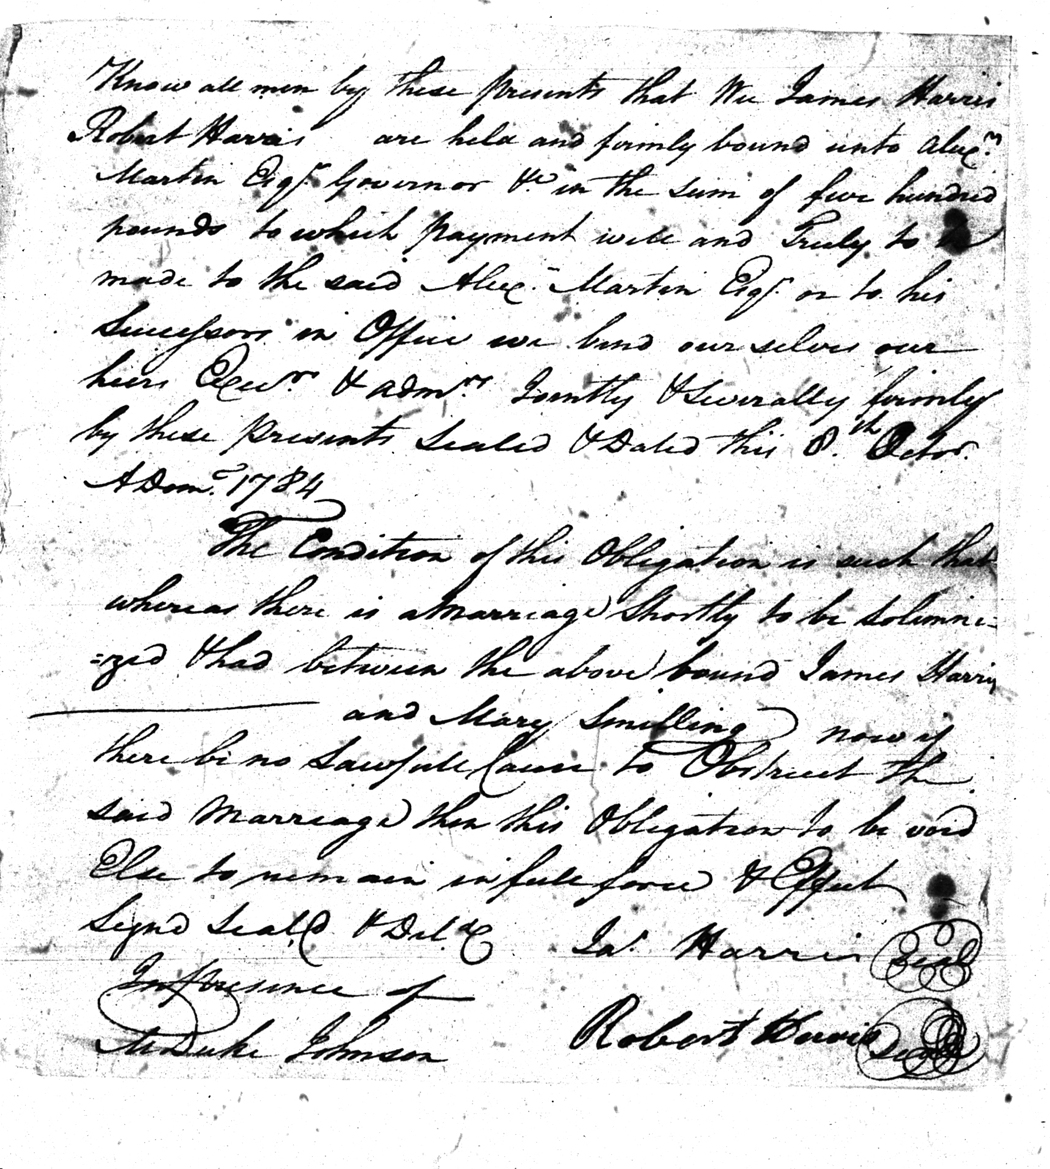 Know all men by these presents that We James Harris
Robert Harris are held and firmly bound unto Alex.r
Martin Esqr. Governor &c in the sum of five hundred
pounds to which payment well and Truly to be
made to the said Alex.r Martin Esqr. or to his
Successors in Office we bind ourselves our
heirs Execrs & admrs Jointly & Severally firmly
by these presents Sealed & Dated this 8.th Octor.
A Dom. 1784
The Condition of this Obligation is such that
whereas there is a Marriage Shortly to be solemni=
=zed & had between the above bound James Harris
and Mary Smilling now if
there be no Lawfull Cause to Obstruct the
said Marriage then this Obligation to be void
Else to remain in full force & Effect
Signd Seal,d & Deld
In presence of
Jas. Harris Seal
Robert Harris Seal
McDuke Johnson